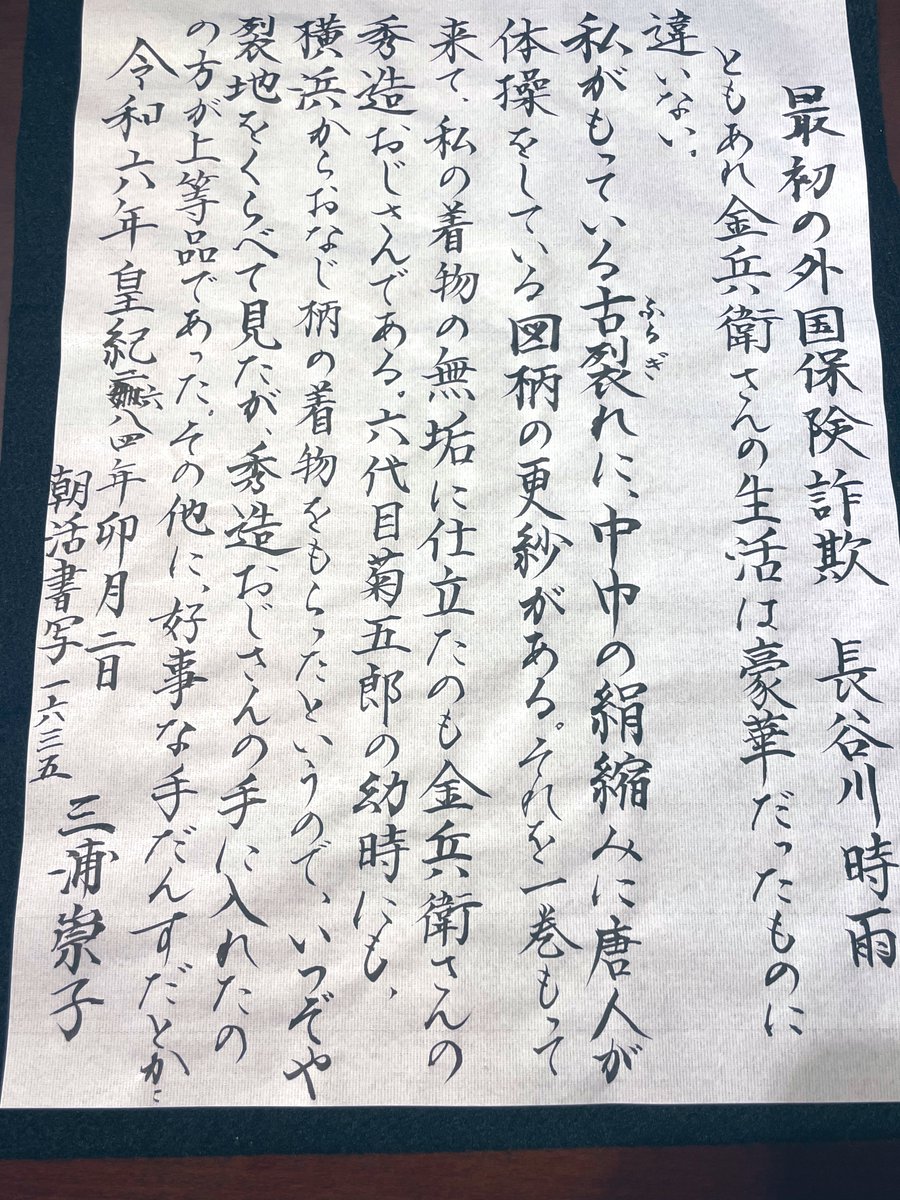 最初の外国保険詐欺 長谷川時雨
ともあれ金兵衛さんの生活は豪華だったものに
違いない。
私がもっている古裂れに、中巾の絹縮みに唐人が
ふるぎ
体操をしている図柄の更紗がある。それを一巻もって
来て、私の着物の無垢に仕立たのも金兵衛さんの
秀造おじさんである。六代目菊五郎の幼時にも、
横浜からおなじ柄の着物をもらったというので、いつぞや
裂地をくらべて見たが、秀造おじさんの手に入れたの
の方が上等品であった。その他に、好事な手だんすだとか、
令和六年 皇紀二六八四年卯月二日
朝活書写一六三五 三浦崇子